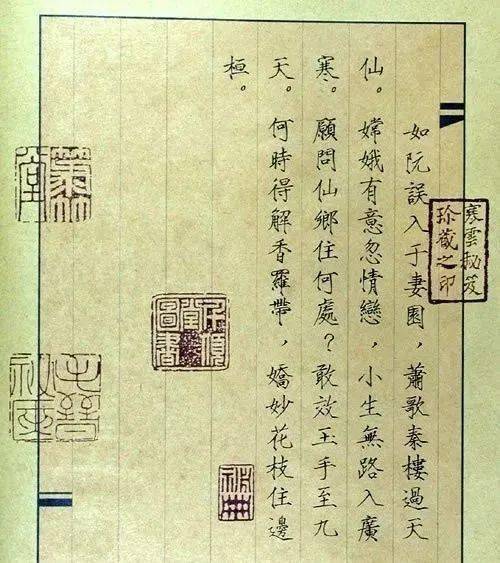 寒雲秘笈
珍藏之印
如阮誤入于妻園，蕭歌秦樓過天
仙。嫦娥有意忽情戀，小生無路入廣
寒。顧問仙鄉住何處？敢效玉手至九
天。何時得解香羅帶，嬌妙花枝住邊
桓。